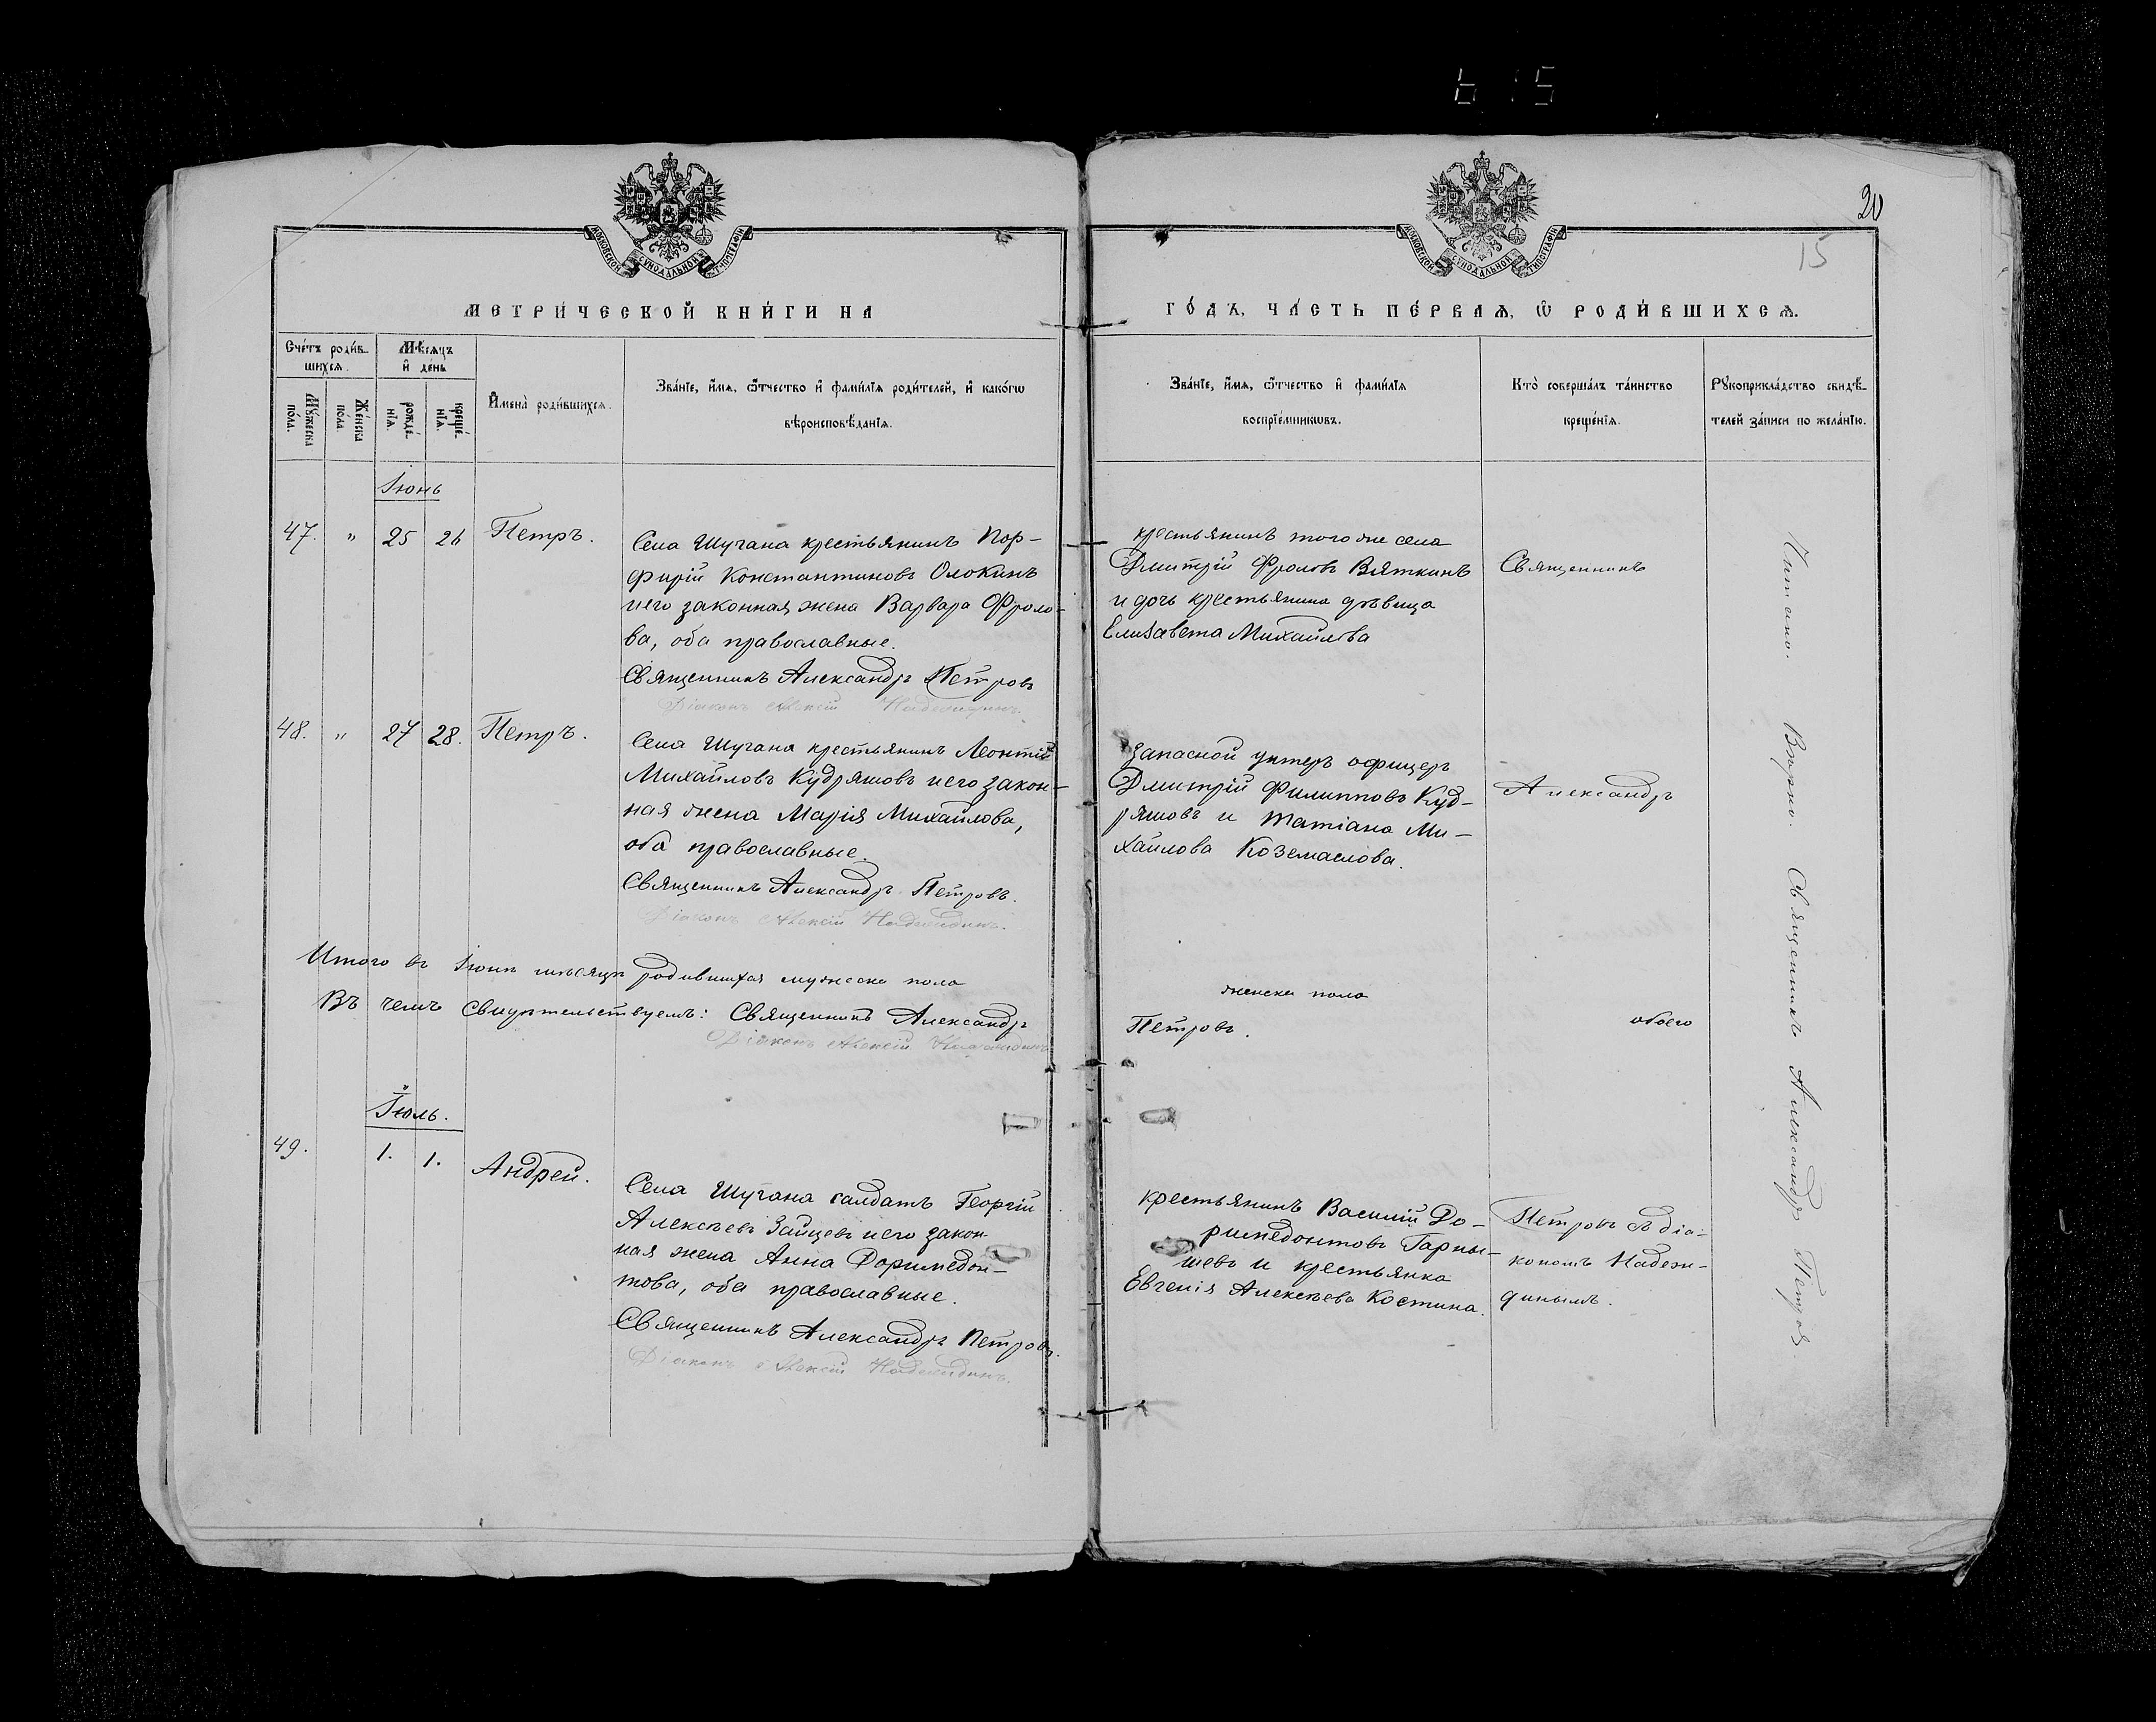 20
15
МОСКОВСКОЙ СѴНОДАЛЬНОЙ ТИПОГРАФІИ
МОСКОВСКОЙ СѴНОДАЛЬНОЙ ТИПОГРАФІИ
МЕТРИ́ЧЕСКОЙ КНИ́ГИ НА
ГО́ДЪ, ЧА́СТЬ ПЕ́РВАѦ, Ѿ РОДИ́ВШИХСѦ.
Счётъ роди́в-
шихсѧ.
Мѣ́сѧцъ
и҆ де́нь
Мꙋ́жеска
по́ла.
Же́нска
по́ла.
рожде́-
нїѧ.
креще́-
нїѧ.
И҆мена̀ роди́вшихсѧ.
Зва́нїе, и҆́мѧ, ѻ҆́тчество и҆ фами́лїѧ роди́телей, и҆ како́гѡ
вѣроисповѣ́данїѧ.
Зва́нїе, и҆́мѧ, ѻ҆́тчество и҆ фами́лїѧ
воспрїе́мникѡвъ.
Кто̀ соверша́лъ та́инство
креще́нїѧ.
Рꙋкоприкла́дство свидѣ́-
телей за́писи по жела́нїю.
Іюнь
47. " 25 26 Петръ.
Села Шугана крестьянинъ Пор-
фирій Константиновъ Олокинъ
и его законная жена Варвара Фроло-
ва, оба православные.
Священникъ Александръ Петровъ
Діаконъ Алексій Надеждинъ.
крестьянинъ того же села
Дмитрій Фроловъ Вяткинъ
и дочь крестьянина дѣвица
Елизавета Михайлова
Священникъ
48. " 27 28. Петръ.
Села Шугана крестьянинъ Леонтій
Михайловъ Кудряшовъ и его закон-
ная жена Марія Михайлова,
оба православные.
Священникъ Александръ Петровъ.
Діаконъ Алексій Надеждинъ.
Запасной унтеръ офицеръ
Дмитрій Филипповъ Куд-
ряшовъ и Татіана Ми-
хайлова Коземаслова.
Александръ
Итого въ Іюнѣ мѣсяцѣ родившихся мужеска пола
женска пола
обоего
Въ чемъ свидѣтельствуемъ: Священникъ Александръ
Петровъ.
Діаконъ Алексій Надеждинъ
Іюль.
49. 1. 1. Андрей.
Села Шугана салдатъ Георгій
Алексѣевъ Зайцевъ и его закон
ная жена Анна Доримедон-
това, оба православные.
Священникъ Александръ Петровъ.
Діаконъ Алексій Надеждинъ.
крестьянинъ Василій До-
римедонтовъ Гарны-
шевъ и крестьянка
Евгенія Алексѣева Костина.
Петровъ съ діа-
кономъ Надеж-
динымъ.
Читано. Вѣрно. Священникъ Александръ Петровъ.